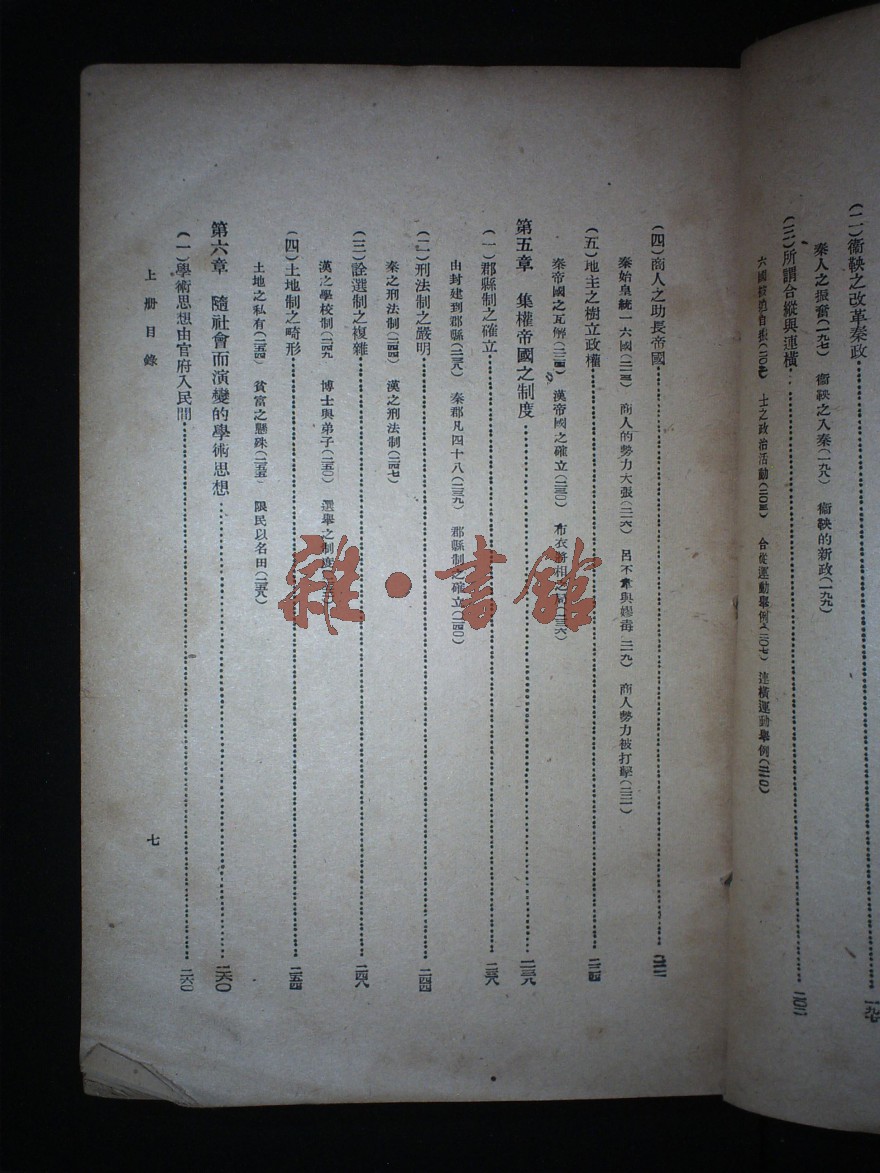 (二)衞鞅之改革秦政……一九七
秦人之振奮(一九七) 衞鞅之入秦(一九八) 衞鞅的新政(一九九)
(三)所謂合縱與連橫……二〇二
士之政治活動 合從運動舉例(二〇七) 連橫運動舉例
(四)商人之助長帝國
秦始皇統一六國 商人的勢力大張(二一六) 呂不韋與嫪毐(二一九) 商人勢力被打擊(二二一)
(五)地主之樹立政權……二二四
秦帝國之瓦解 漢帝國之確立(二三〇) 布衣將相之局(二三六)
第五章 集權帝國之制度
(一)郡縣制之確立……二三八
由封建到郡縣(二三八) 秦郡凡四十八(二三九) 郡縣制之確立(二四〇)
(二)刑法制之嚴明……二四四
秦之刑法制(二四四) 漢之刑法制(二四七)
(三)詮選制之複雜……二四八
漢之學校制(二四九) 博士與弟子(二五〇) 選舉之制度
(四)土地制之畸形……二五四
土地之私有(二五四) 貧富之懸殊(二五五) 限民以名田(二五八)
第六章 隨社會而演變的學術思想……二六〇
(一)學術思想由官府入民間……二六〇
上册目錄 七
雜·書館